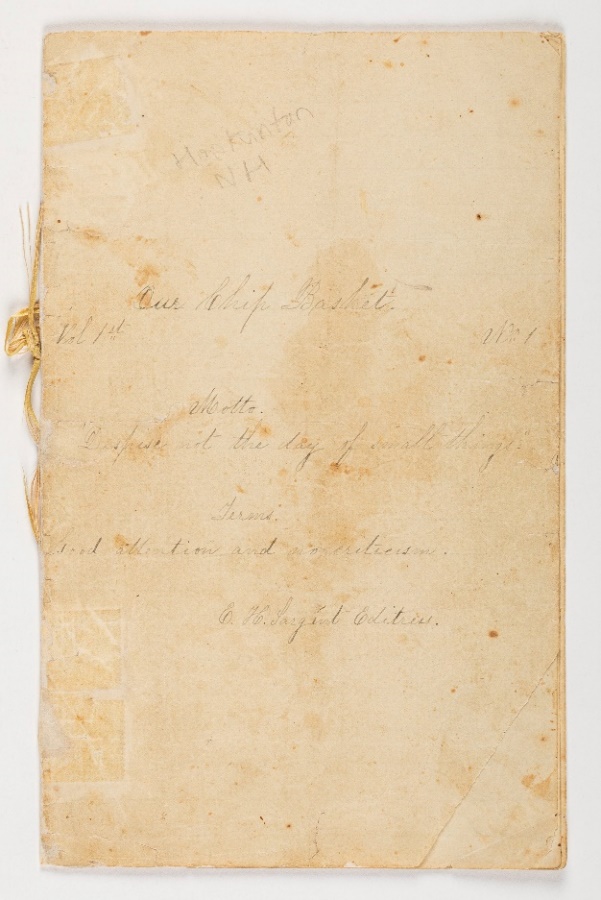 Hopkinton
NH
Our Chip Basket.
Vol 1st No. 1
Motto.
Despise not the day of small things.
Terms.
Good attention and no criticism.
C. H. Sargent Editress.